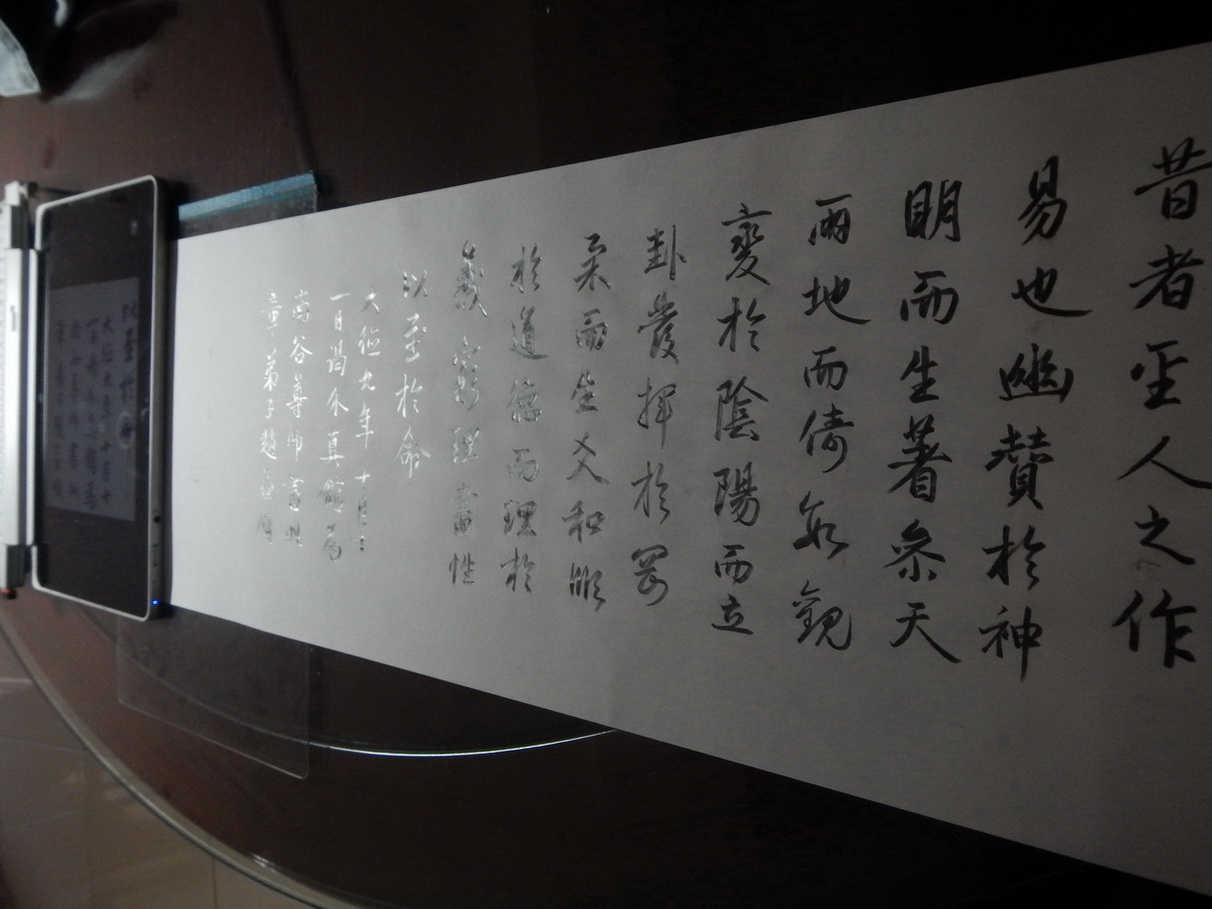 昔者聖人之作
易也幽贊於神
明而生蓍參天
兩地而倚數觀
變於陰陽而立
卦發揮於剛
柔而生爻和順
於道德而理於
義窮理盡性
以至於命
大德九年十月
一日謁 真館為
南谷尊師書此
章弟子趙孟頫